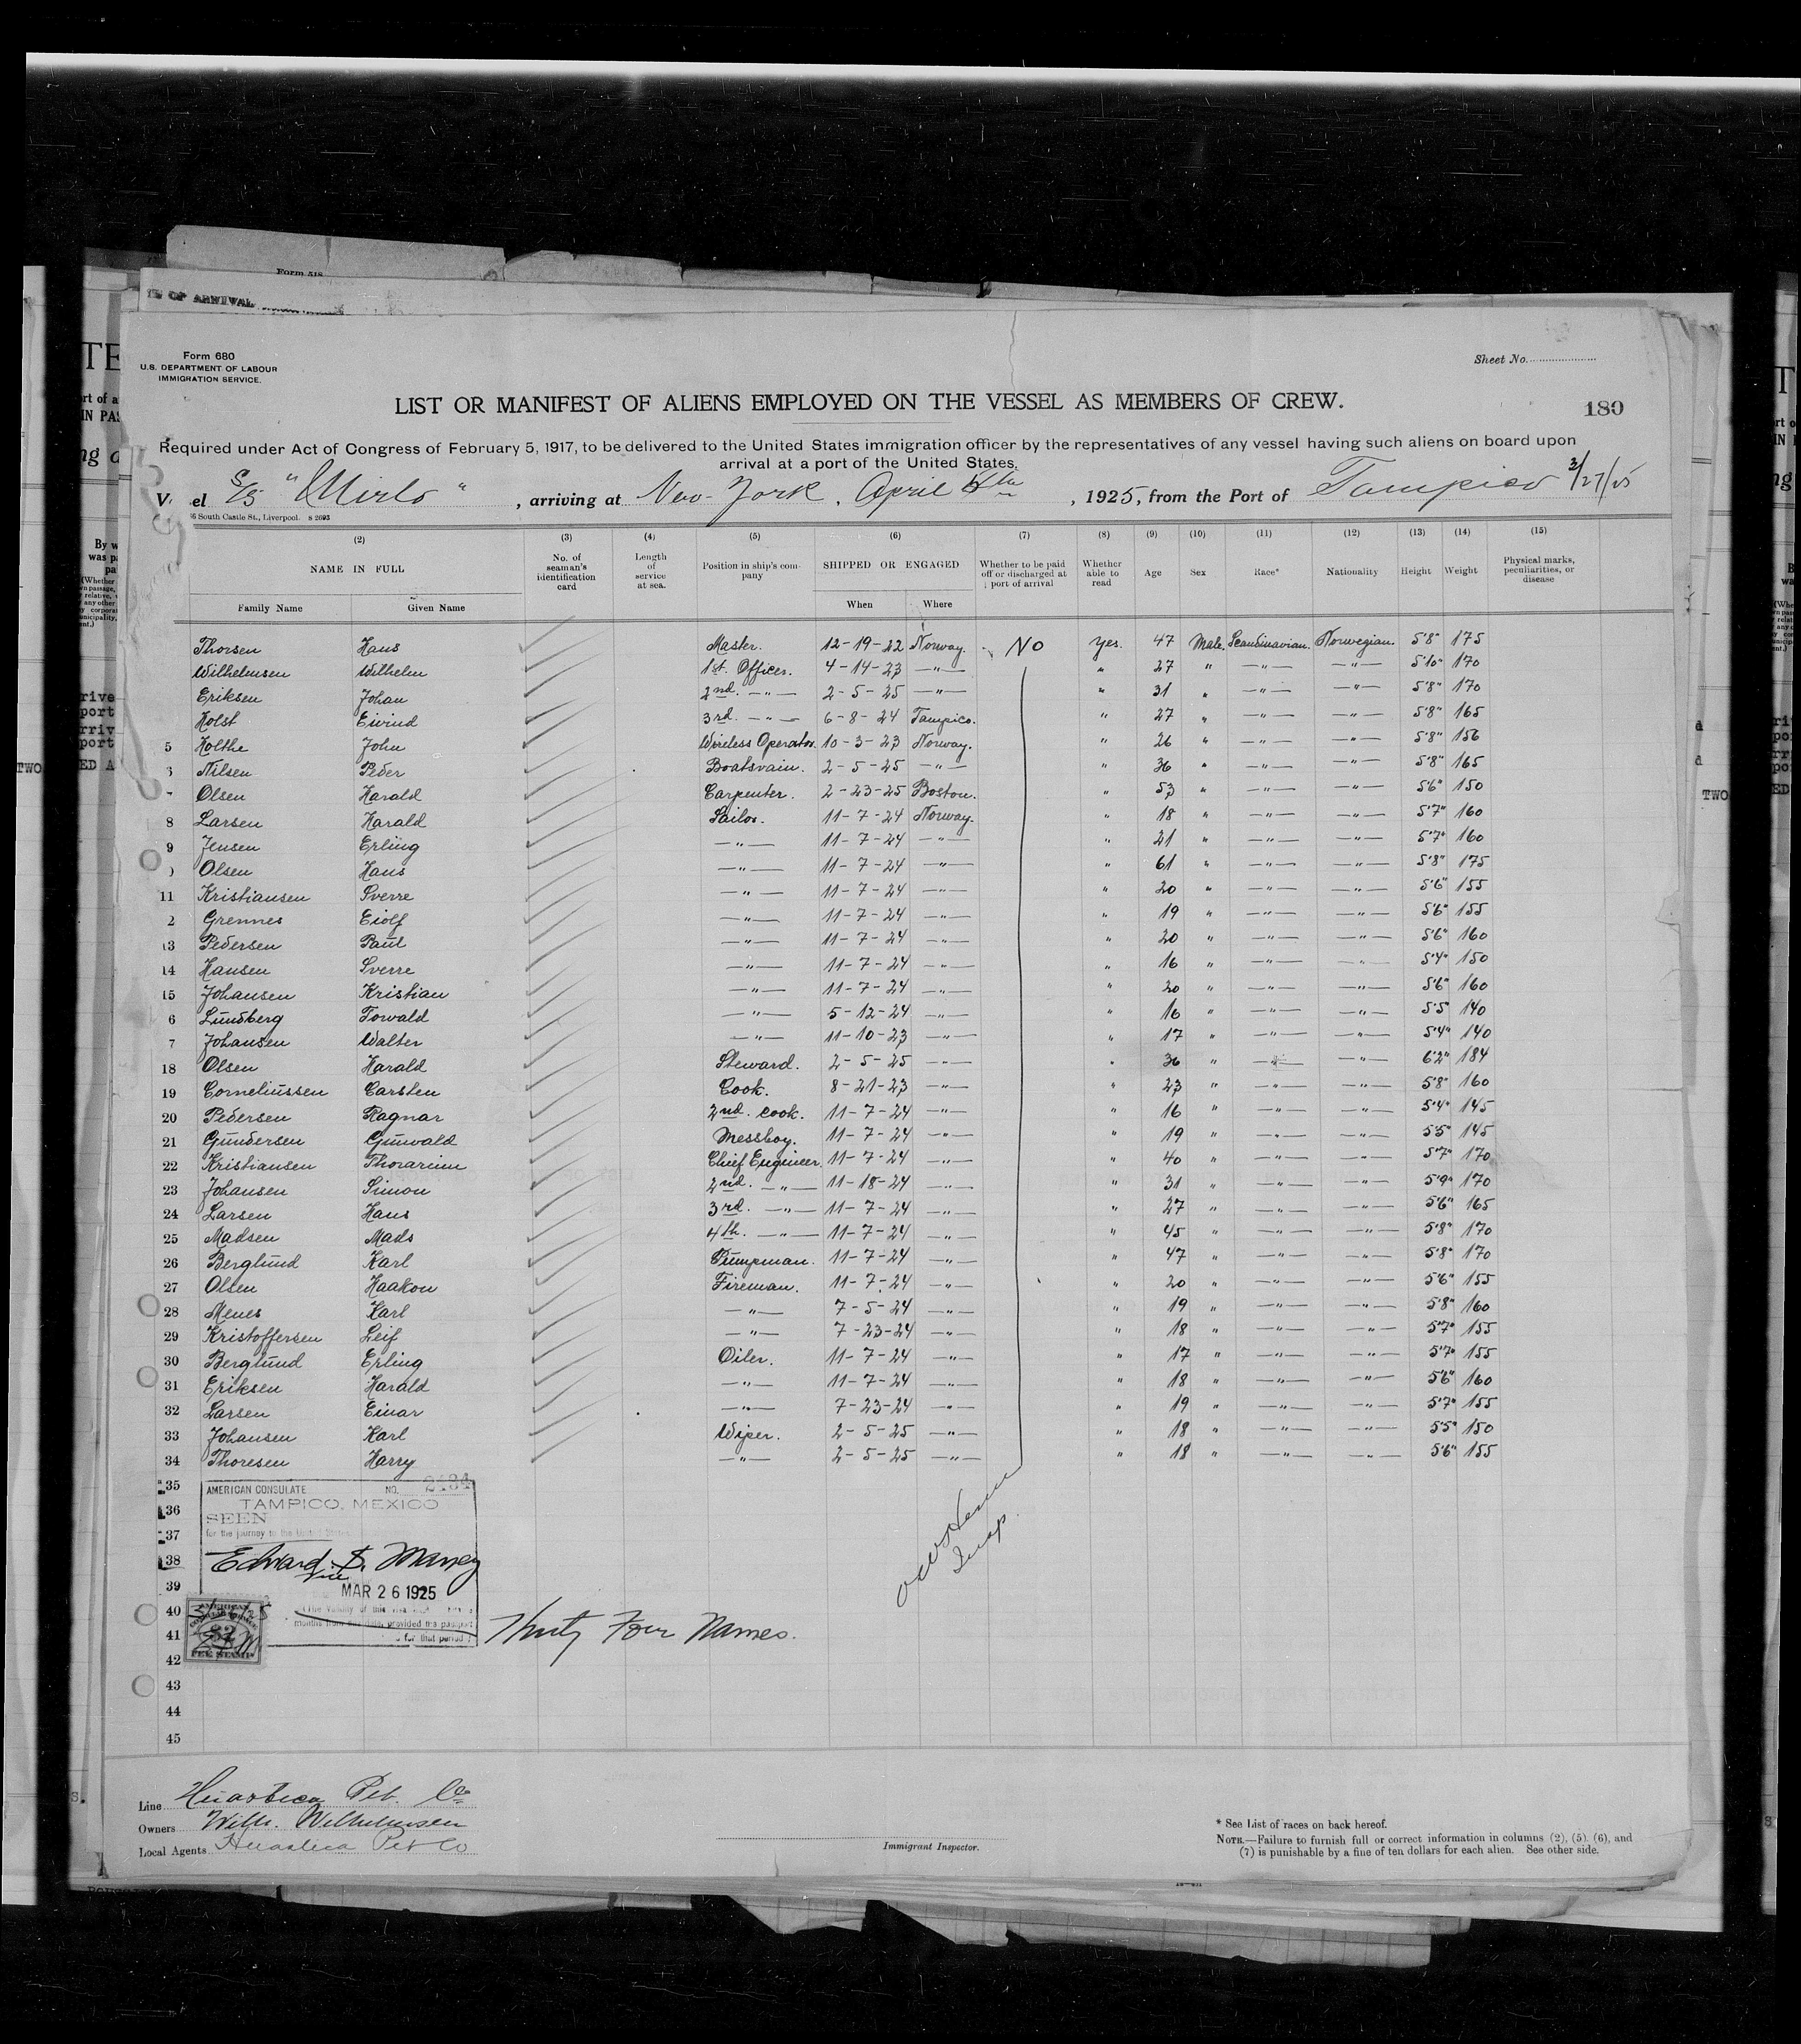 Form 518
OF ARRIVAL
Form 680
U.S. DEPARTMENT OF LABOUR
IMMIGRATION SERVICE.
Sheet No.
LIST OR MANIFEST OF ALIENS EMPLOYED ON THE VESSEL AS MEMBERS OF CREW.
180
Required under Act of Congress of February 5, 1917, to be delivered to the United States immigration officer by the representatives of any vessel having such aliens on board upon
arrival at a port of the United States.
V el S/S "Mirlo", arriving at New-York, April 4th, 1925, from the Port of Tampico 3/27/25
6 South Castle St., Liverpool. S 2693
(2) (3) (4) (5) (6) (7) (8) (9) (10) (11) (12) (13) (14) (15)
NAME IN FULL No. of seaman's identification card Length of service at sea. Position in ship's company SHIPPED OR ENGAGED Whether to be paid off or discharged at port of arrival Whether able to read Age Sex Race* Nationality Height Weight Physical marks, peculiarities, or disease
Family Name Given Name When Where
Thorsen Hans Master. 12-19-22 Norway. No Yes. 47 Male. Scandinavian. Norwegian. 5'8" 175
Wilhelmsen Wilhelm 1st. Officer. 4-14-23 —"— " 27 " —"— —"— 5'10" 170
Eriksen Johan 2nd. —"— 2-5-25 —"— " 31 " —"— —"— 5'8" 170
Holst Eivind 3rd. —"— 6-8-24 Tampico. " 27 " —"— —"— 5'8" 165
5 Holthe John Wireless Operator. 10-3-23 Norway. " 26 " —"— —"— 5'8" 156
Nilsen Peder Boatsvain. 2-5-25 —"— " 36 " —"— —"— 5'8" 165
Olsen Harald Carpenter. 2-23-25 Boston. " 53 " —"— —"— 5'6" 150
8 Larsen Harald Sailor. 11-7-24 Norway. " 18 " —"— —"— 5'7" 160
9 Jensen Erling —"— 11-7-24 —"— " 21 " —"— —"— 5'7" 160
Olsen Hans —"— 11-7-24 —"— " 61 " —"— —"— 5'8" 175
11 Kristiansen Sverre —"— 11-7-24 —"— " 20 " —"— —"— 5'6" 155
2 Grennes Eiolf —"— 11-7-24 —"— " 19 " —"— —"— 5'6" 155
13 Pedersen Paul —"— 11-7-24 —"— " 20 " —"— —"— 5'6" 160
14 Hansen Sverre —"— 11-7-24 —"— " 16 " —"— —"— 5'4" 150
15 Johansen Kristian —"— 11-7-24 —"— " 20 " —"— —"— 5'6" 160
6 Lundberg Torvald —"— 5-12-24 —"— " 16 " —"— —"— 5'5" 140
7 Johansen Walter —"— 11-10-23 —"— " 17 " —"— —"— 5'4" 140
18 Olsen Harald Steward. 2-5-25 —"— " 36 " —"— —"— 6'2" 184
19 Corneliussen Carsten Cook. 8-21-23 —"— " 23 " —"— —"— 5'8" 160
20 Pedersen Ragnar 2nd. Cook. 11-7-24 —"— " 16 " —"— —"— 5'4" 145
21 Gundersen Gunvald Messboy. 11-7-24 —"— " 19 " —"— —"— 5'5" 145
22 Kristiansen Thorarinn Chief Engineer. 11-7-24 —"— " 40 " —"— —"— 5'7" 170
23 Johansen Simon 2nd. —"— 11-18-24 —"— " 31 " —"— —"— 5'9" 170
24 Larsen Hans 3rd. —"— 11-7-24 —"— " 27 " —"— —"— 5'6" 165
25 Madsen Mads 4th. —"— 11-7-24 —"— " 45 " —"— —"— 5'8" 170
26 Berglund Karl Pumpman. 11-7-24 —"— " 47 " —"— —"— 5'8" 170
27 Olsen Haakon Fireman. 11-7-24 —"— " 20 " —"— —"— 5'6" 155
28 Menes Karl —"— 7-5-24 —"— " 19 " —"— —"— 5'8" 160
29 Kristoffersen Leif —"— 7-23-24 —"— " 18 " —"— —"— 5'7" 155
30 Berglund Erling Oiler. 11-7-24 —"— " 17 " —"— —"— 5'7" 155
31 Eriksen Harald —"— 11-7-24 —"— " 18 " —"— —"— 5'6" 160
32 Larsen Einar —"— 7-23-24 —"— " 19 " —"— —"— 5'7" 155
33 Johansen Karl Wiper. 2-5-25 —"— " 18 " —"— —"— 5'5" 150
34 Thoresen Harry —"— 2-5-25 —"— " 18 " —"— —"— 5'6" 155
35
36
37
38
39
40
41
42
43
44
45
AMERICAN CONSULATE NO. 2434
TAMPICO, MEXICO
SEEN
for the journey to the United States
Edward S. Maney
MAR 26 1925
months from date, provided the passport
for that period
FEE STAMP
Insp.
Thirty Four Names.
Line Huasteca Pet. Co
Owners Wilh. Wilhelmsen
Local Agents Huasteca Pet Co
Immigrant Inspector.
* See List of races on back hereof.
NOTE.—Failure to furnish full or correct information in columns (2), (5), (6), and
(7) is punishable by a fine of ten dollars for each alien. See other side.